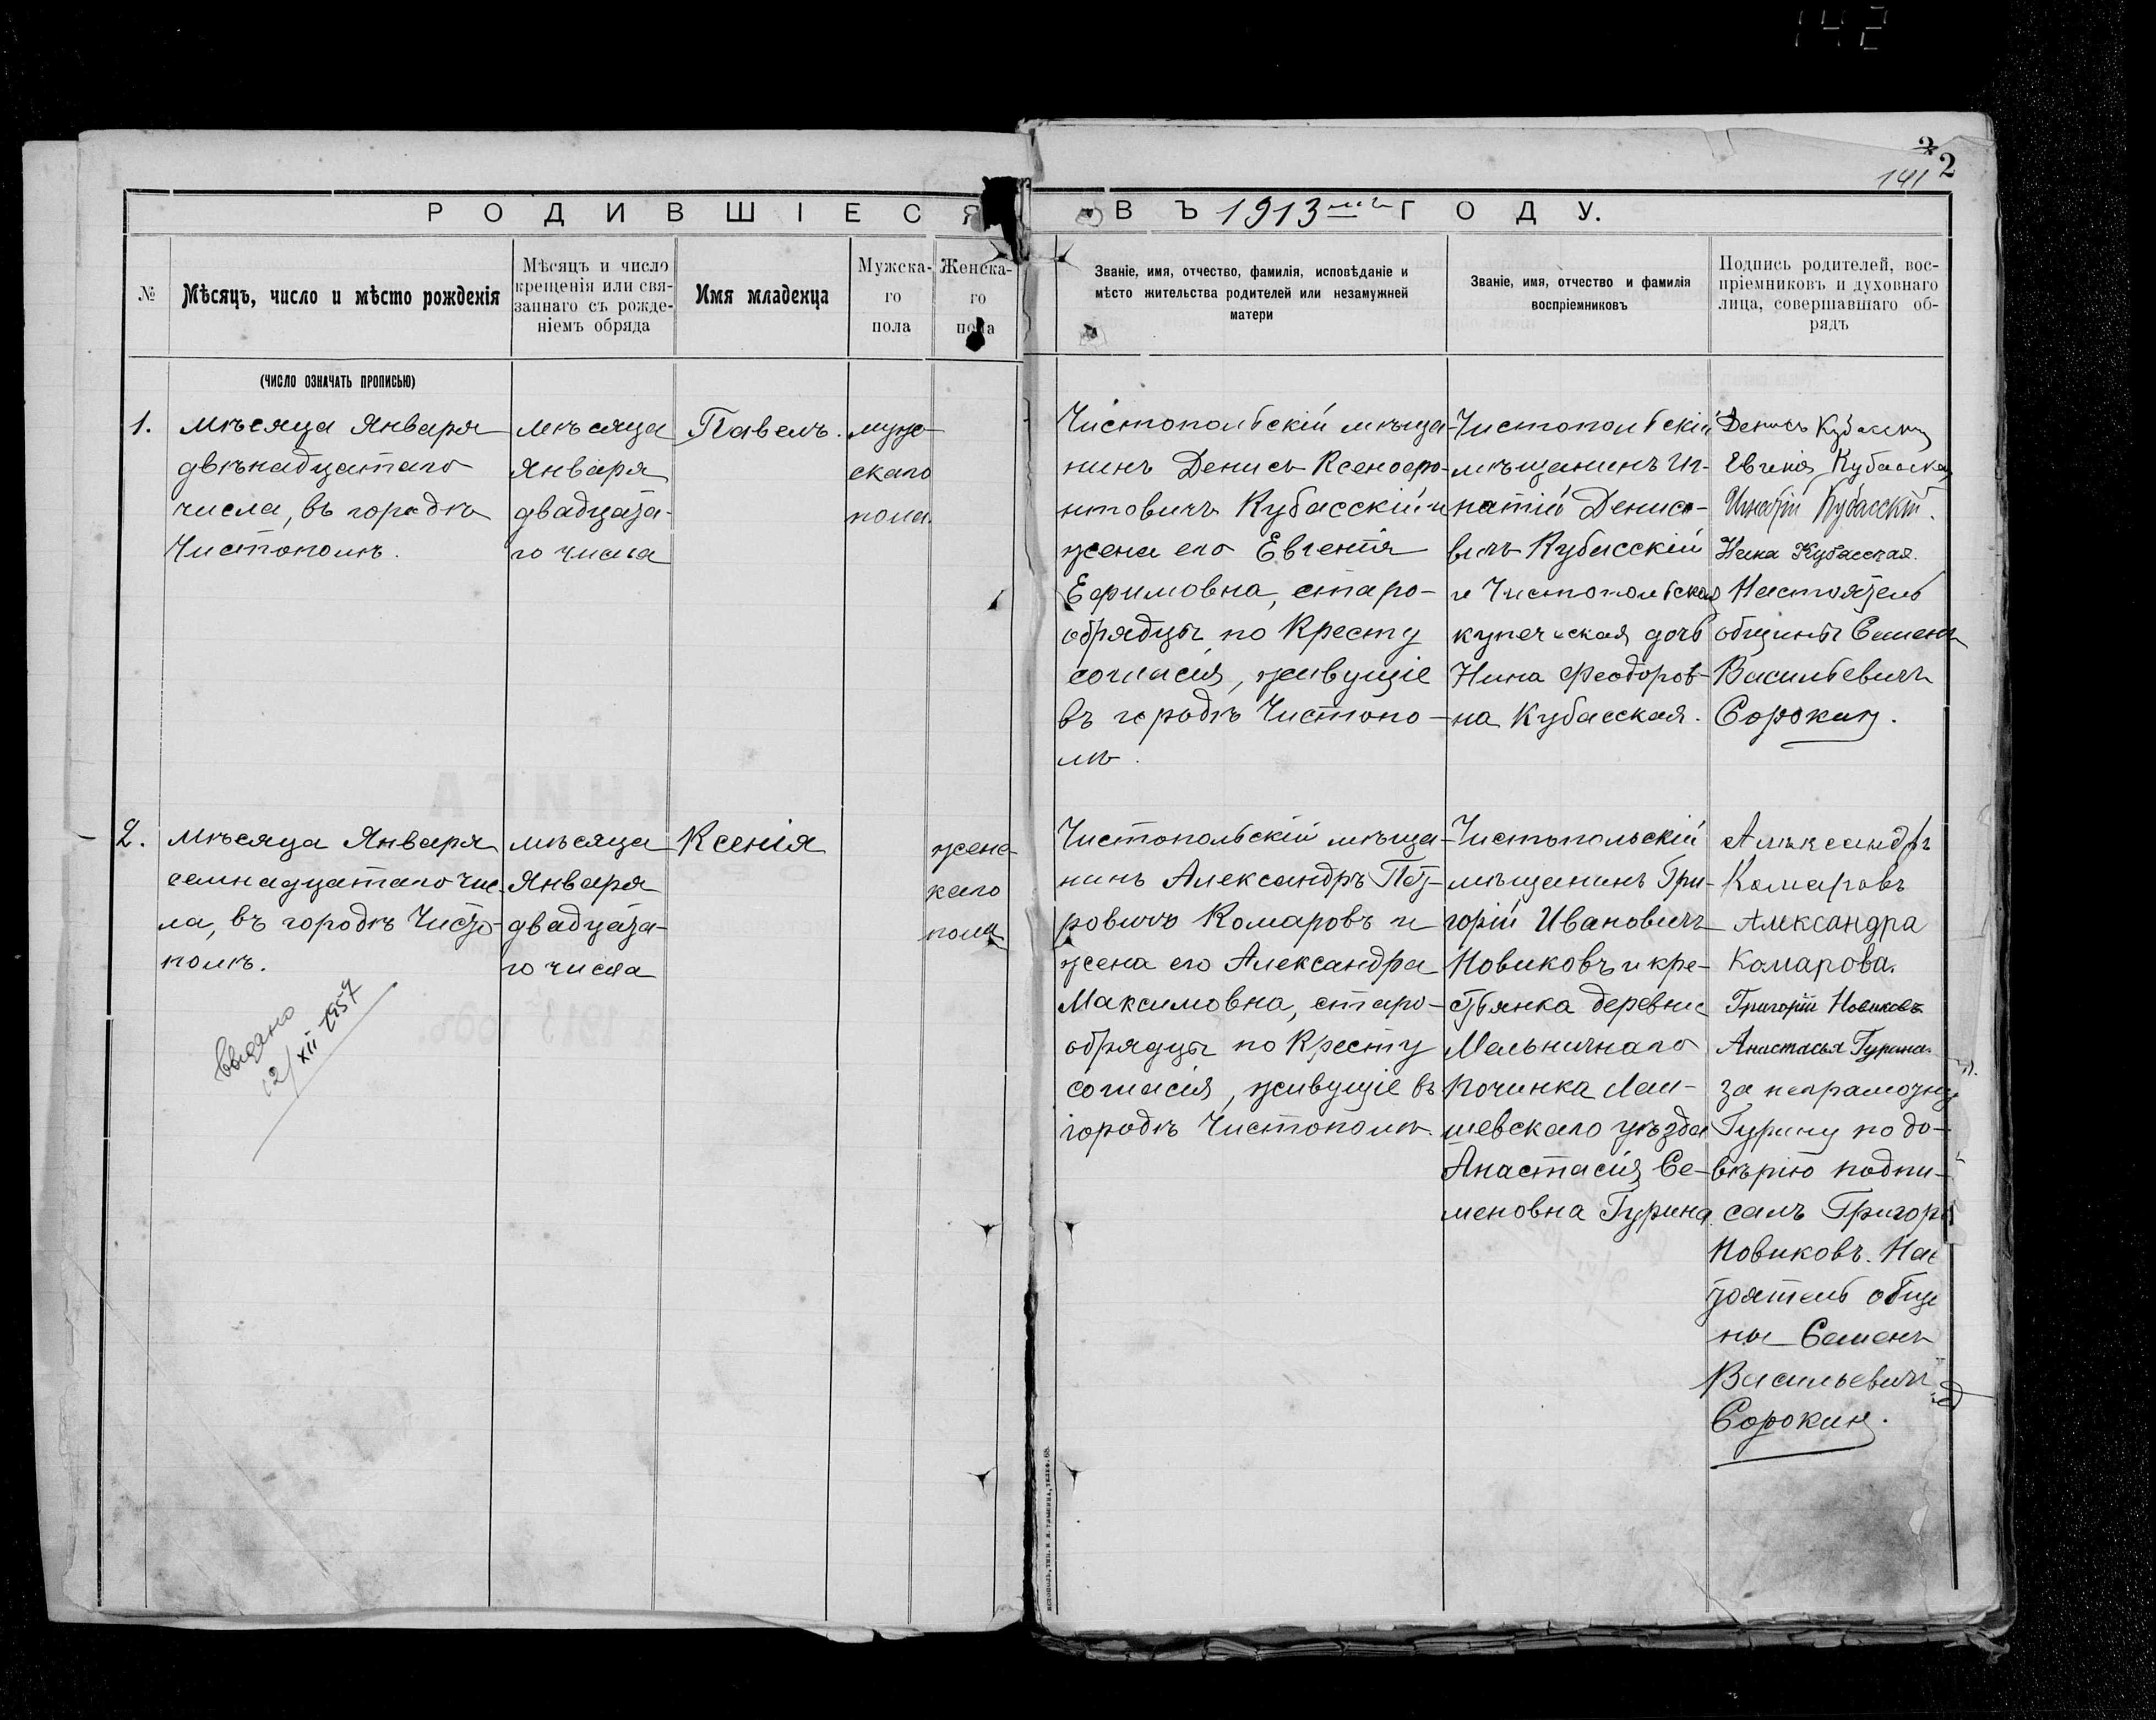 142
2
2
141
РОДИВШІЕСЯ ВЪ 1913 ГОДУ.
№
Мѣсяцъ, число и мѣсто рожденія
Мѣсяцъ и число
крещенія или свя-
заннаго съ рожде-
ніемъ обряда
Имя младенца
Мужска-
го
пола
Женска-
го
пола
Званіе, имя, отчество, фамилія, исповѣданіе и
мѣсто жительства родителей или незамужней
матери
Званіе, имя, отчество и фамилія
воспріемниковъ
Подпись родителей, вос-
пріемниковъ и духовнаго
лица, совершавшаго об-
рядъ
(ЧИСЛО ОЗНАЧАТЬ ПРОПИСЬЮ)
1.
мѣсяца Января
двѣнадцатаго
числа, въ городѣ
Чистополѣ.
мѣсяца
Января
двадцата-
го числа
Павелъ.
муже-
скаго
пола.
Чистопольскій мѣща-
нинъ Денисъ Ксенофо-
нтовичъ Кубасскій и
жена его Евгенія
Ефимовна, старо-
обрядцы по Кресту
согласія, живущіе
въ городѣ Чистопо-
лѣ.
Чистопольскій
мѣщанинъ Иг-
натій Денисо-
вичъ Кубасскій
и Чистопольская
купеческая дочь
Нина Феодоров-
на Кубасская.
Денисъ Кубасскій
Евгенія Кубасская
Игнатій Кубасскій.
Нина Кубасская.
Настоятель
общины Семенъ
Васильевичъ
Сорокин.
2.
мѣсяца Января
семнадцатаго чис-
ла, въ городѣ Чисто-
полѣ.
мѣсяца
Января
двадцата-
го числа
Ксенія
женс
каго
пола
Чистопольскій мѣща-
нинъ Александръ Пет-
ровичъ Комаровъ и
жена его Александра
Максимовна, старо-
обрядцы по Кресту
согласія, живущіе въ
городѣ Чистополѣ.
Чистопольскій
мѣщанинъ Гри-
горій Ивановичъ
Новиковъ и кре-
стьянка деревни
Мельничнаго
Починка Лаи-
шевскаго уѣзда
Анастасія Се-
меновна Гурина.
Александръ
Комаровъ
Александра
Комарова.
Григорій Новиковъ
Анастасья Гурина.
за неграмотну
Гурину по до-
вѣрію подпи-
салъ Григорі
Новиковъ. Нас
тоятель общи
ны Семенъ
Васильевичъ
Сорокин.
Выдано
12/XII-1957